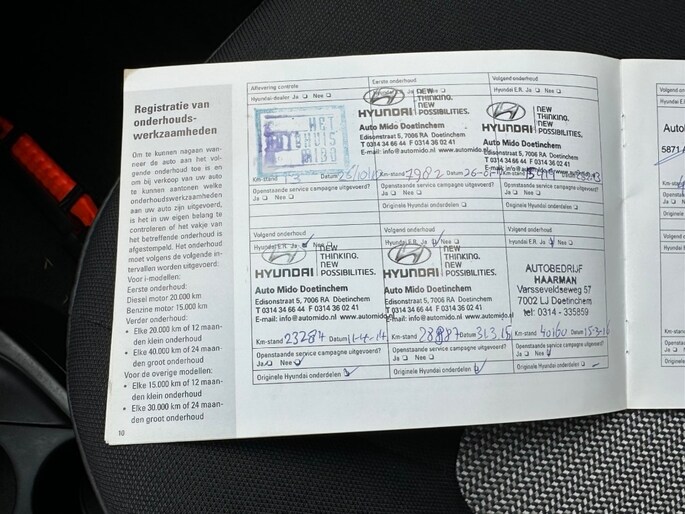 Registratie van
onderhouds-
werkzaamheden
Om te kunnen nagaan wan-
neer de auto aan het vol-
gende onderhoud toe is en
om bij verkoop van uw auto
te kunnen aantonen welke
onderhoudswerkzaamheden
aan uw auto zijn uitgevoerd,
is het in uw eigen belang te
controleren of het vakje van
het betreffende onderhoud is
afgestempeld. Het onderhoud
moet volgens de volgende in-
tervallen worden uitgevoerd:
Voor i-modellen:
Eerste onderhoud:
Diesel motor 20.000 km
Benzine motor 15.000 km
Verder onderhoud:
• Elke 20.000 km of 12 maan-
den klein onderhoud
• Elke 40.000 km of 24 maan-
den groot onderhoud
Voor de overige modellen:
• Elke 15.000 km of 12 maan-
den klein onderhoud
• Elke 30.000 km of 24 maan-
den groot onderhoud
10
Aflevering controle
Hyundai-dealer Ja Nee
HET
HUIS
Km-stand 13 Datum
Openstaande service campagne uitgevoerd?
Ja Nee
Eerste onderhoud
Hyundai E.R. Ja Nee
HYUNDAI
NEW
THINKING.
NEW
POSSIBILITIES.
Auto Mido Doetinchem
Edisonstraat 5, 7006 RA Doetinchem
T 0314 34 66 44 F 0314 36 02 41
E-mail: info@automido.nl www.automido.nl
Km-stand 7982 Datum
Openstaande service campagne uitgevoerd?
Ja Nee
Originele Hyundai onderdelen
Volgend onderhoud
Hyundai E.R. Ja Nee
HYUNDAI
NEW
THINKING.
NEW
POSSIBILITIES.
Auto Mido Doetinchem
Edisonstraat 5, 7006 RA Doetinchem
T 0314 34 66 44 F 0314 36 02 41
E-mail: info@automido.nl www.automido.nl
Km-stand Datum
Openstaande service campagne uitgevoerd?
Ja Nee
Originele Hyundai onderdelen
Volgend onderhoud
Hyundai E.R. Nee
HYUNDAI
NEW
THINKING.
NEW
POSSIBILITIES.
Auto Mido Doetinchem
Edisonstraat 5, 7006 RA Doetinchem
T 0314 34 66 44 F 0314 36 02 41
E-mail: info@automido.nl www.automido.nl
Km-stand 23284 Datum 11-4-14
Openstaande service campagne uitgevoerd?
Ja Nee
Originele Hyundai onderdelen
Volgend onderhoud
Hyundai E.R. Nee
HYUNDAI
NEW
THINKING.
NEW
POSSIBILITIES.
Auto Mido Doetinchem
Edisonstraat 5, 7006 RA Doetinchem
T 0314 34 66 44 F 0314 36 02 41
E-mail: info@automido.nl www.automido.nl
Km-stand Datum 31.3.15
Openstaande service campagne uitgevoerd?
Ja Nee
Originele Hyundai onderdelen
Volgend onderhoud
Hyundai E.R. Nee
AUTOBEDRIJF
HAARMAN
Varsseveldseweg 57
7002 LJ Doetinchem
tel: 0314 - 335859
Km-stand 40160 Datum 15-3-16
Openstaande service campagne uitgevoerd?
Ja Nee
Originele Hyundai onderdelen